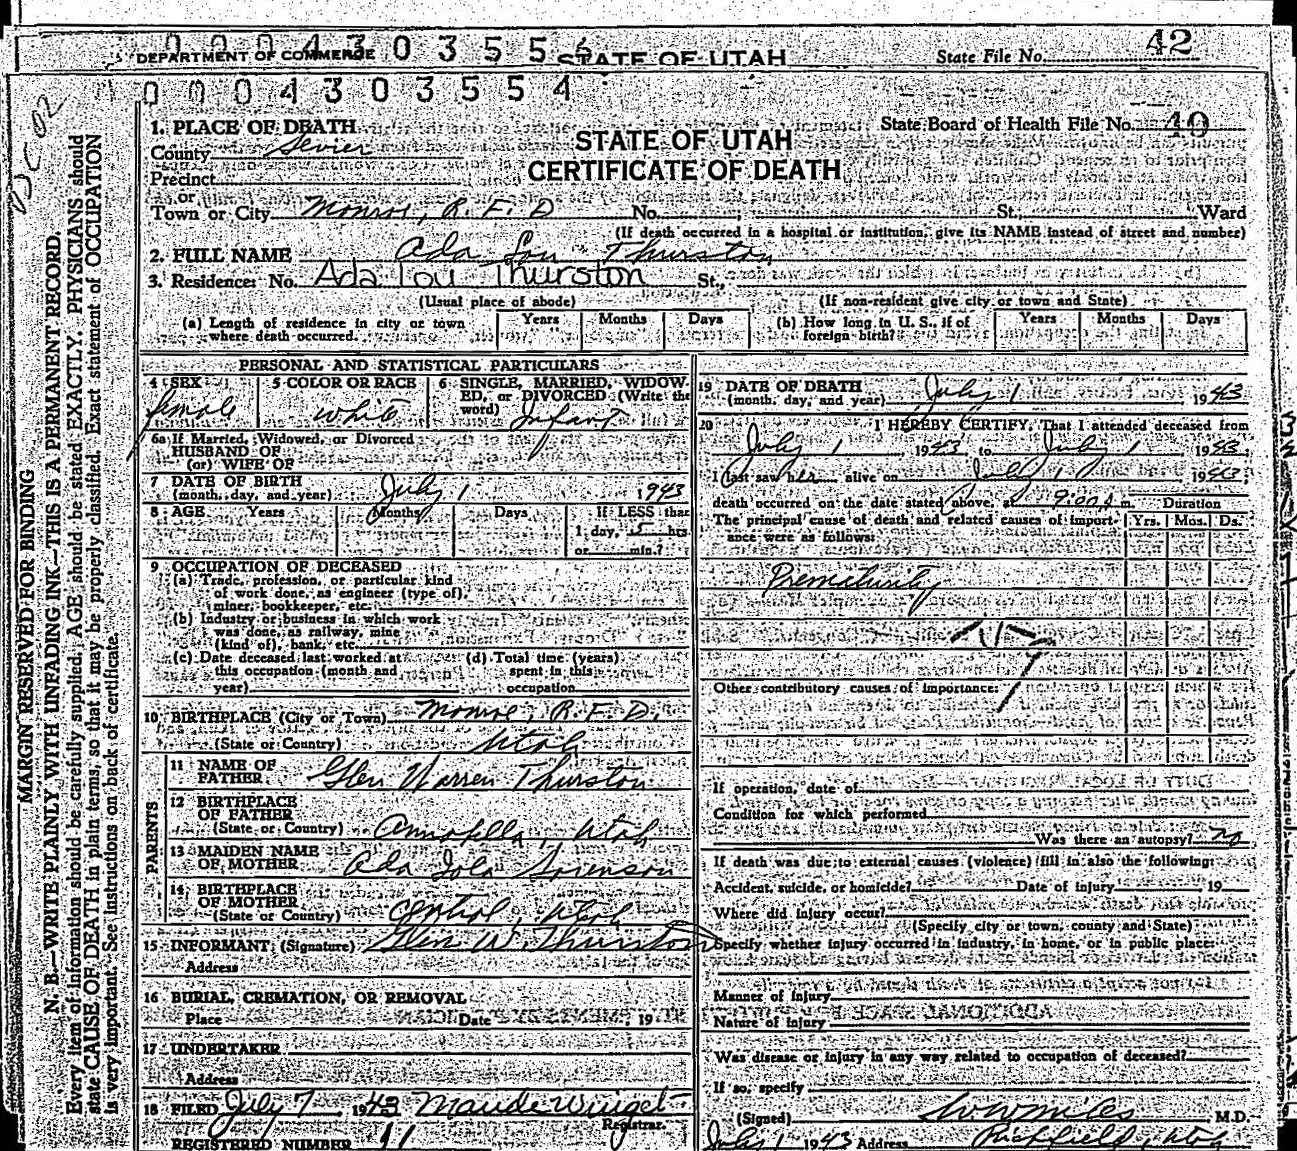 DEPARTMENT OF COMMERCE 0 0 0 4 3 0 3 5 5 STATE OF UTAH State File No. 42
0 0 0 4 3 0 3 5 5 4
1. PLACE OF DEATH
State Board of Health File No. 40
County Sevier
STATE OF UTAH
CERTIFICATE OF DEATH
Precinct
or
Town or City Monroe, R. F. D No. St., Ward
(If death occurred in a hospital or institution, give its NAME instead of street and number)
2. FULL NAME Ada Lou Thurston
3. Residence: No. Ada Lou Thurston St.,
(Usual place of abode) (If non-resident give city or town and State)
(a) Length of residence in city or town where death occurred. Years Months Days (b) How long in U. S., if of foreign birth? Years Months Days
PERSONAL AND STATISTICAL PARTICULARS
4 SEX female
5 COLOR OR RACE white
6 SINGLE, MARRIED, WIDOWED, or DIVORCED (Write the word) Infant
6a If Married, Widowed, or Divorced
HUSBAND OF
(or) WIFE OF
7 DATE OF BIRTH
(month, day, and year) July 1 1943
8 AGE Years Months Days If LESS than
1 day, 5 hrs.
or min.?
9 OCCUPATION OF DECEASED
(a) Trade, profession, or particular kind
of work done, as engineer (type of),
miner, bookkeeper, etc.
(b) Industry or business in which work
was done, as railway, mine
(kind of), bank, etc.
(c) Date deceased last worked at
this occupation (month and
year)
(d) Total time (years)
spent in this
occupation
10 BIRTHPLACE (City or Town) Monroe, R. F. D.
(State or Country) Utah
PARENTS
11 NAME OF
FATHER Glen Warren Thurston
12 BIRTHPLACE
OF FATHER
(State or Country) Annabella, Utah
13 MAIDEN NAME
OF MOTHER Ada Iola Sorenson
14 BIRTHPLACE
OF MOTHER
(State or Country) Central, Utah
15 INFORMANT (Signature) Glen W. Thurston
Address
16 BURIAL, CREMATION, OR REMOVAL
Place Date , 19
17 UNDERTAKER
Address
18 FILED July 7 1943
Registrar.
REGISTERED NUMBER 11
19 DATE OF DEATH
(month, day, and year) July 1 1943
20 I HEREBY CERTIFY, That I attended deceased from
July 1 1943 to July 1 1943.
I last saw her alive on July 1 1943,
death occurred on the date stated above, at 9:00 m. Duration
The principal cause of death and related causes of importance were as follows: Yrs. Mos. Ds.
Prematurity
Other contributory causes of importance:
If operation, date of
Condition for which performed
Was there an autopsy? no
If death was due to external causes (violence) fill in also the following:
Accident, suicide, or homicide? Date of injury 19
Where did injury occur?
(Specify city or town, county and State)
Specify whether injury occurred in industry, in home, or in public place:
Manner of injury
Nature of injury
Was disease or injury in any way related to occupation of deceased?
If so, specify
(Signed) M.D.
July 1 1943 Address Richfield, Utah
MARGIN RESERVED FOR BINDING
N. B.—WRITE PLAINLY, WITH UNFADING INK—THIS IS A PERMANENT RECORD.
Every item of information should be carefully supplied. AGE should be stated EXACTLY. PHYSICIANS should
state CAUSE OF DEATH in plain terms, so that it may be properly classified. Exact statement of OCCUPATION
is very important. See instructions on back of certificate.